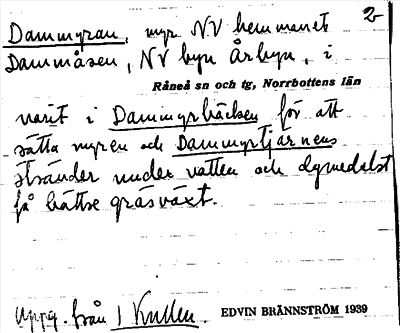 2
Dammyran, myr NV hemmanet
Dammåsen, NV byn Årbyn, i
Råneå sn och tg, Norrbottens län
varit i Dammyrbäcken för att
sätta myren och Dammyrtjärnens
stränder under vatten och dymedelst
få bättre gräsväxt.
Uppg. från J Kullen.
EDVIN BRÄNNSTRÖM 1939